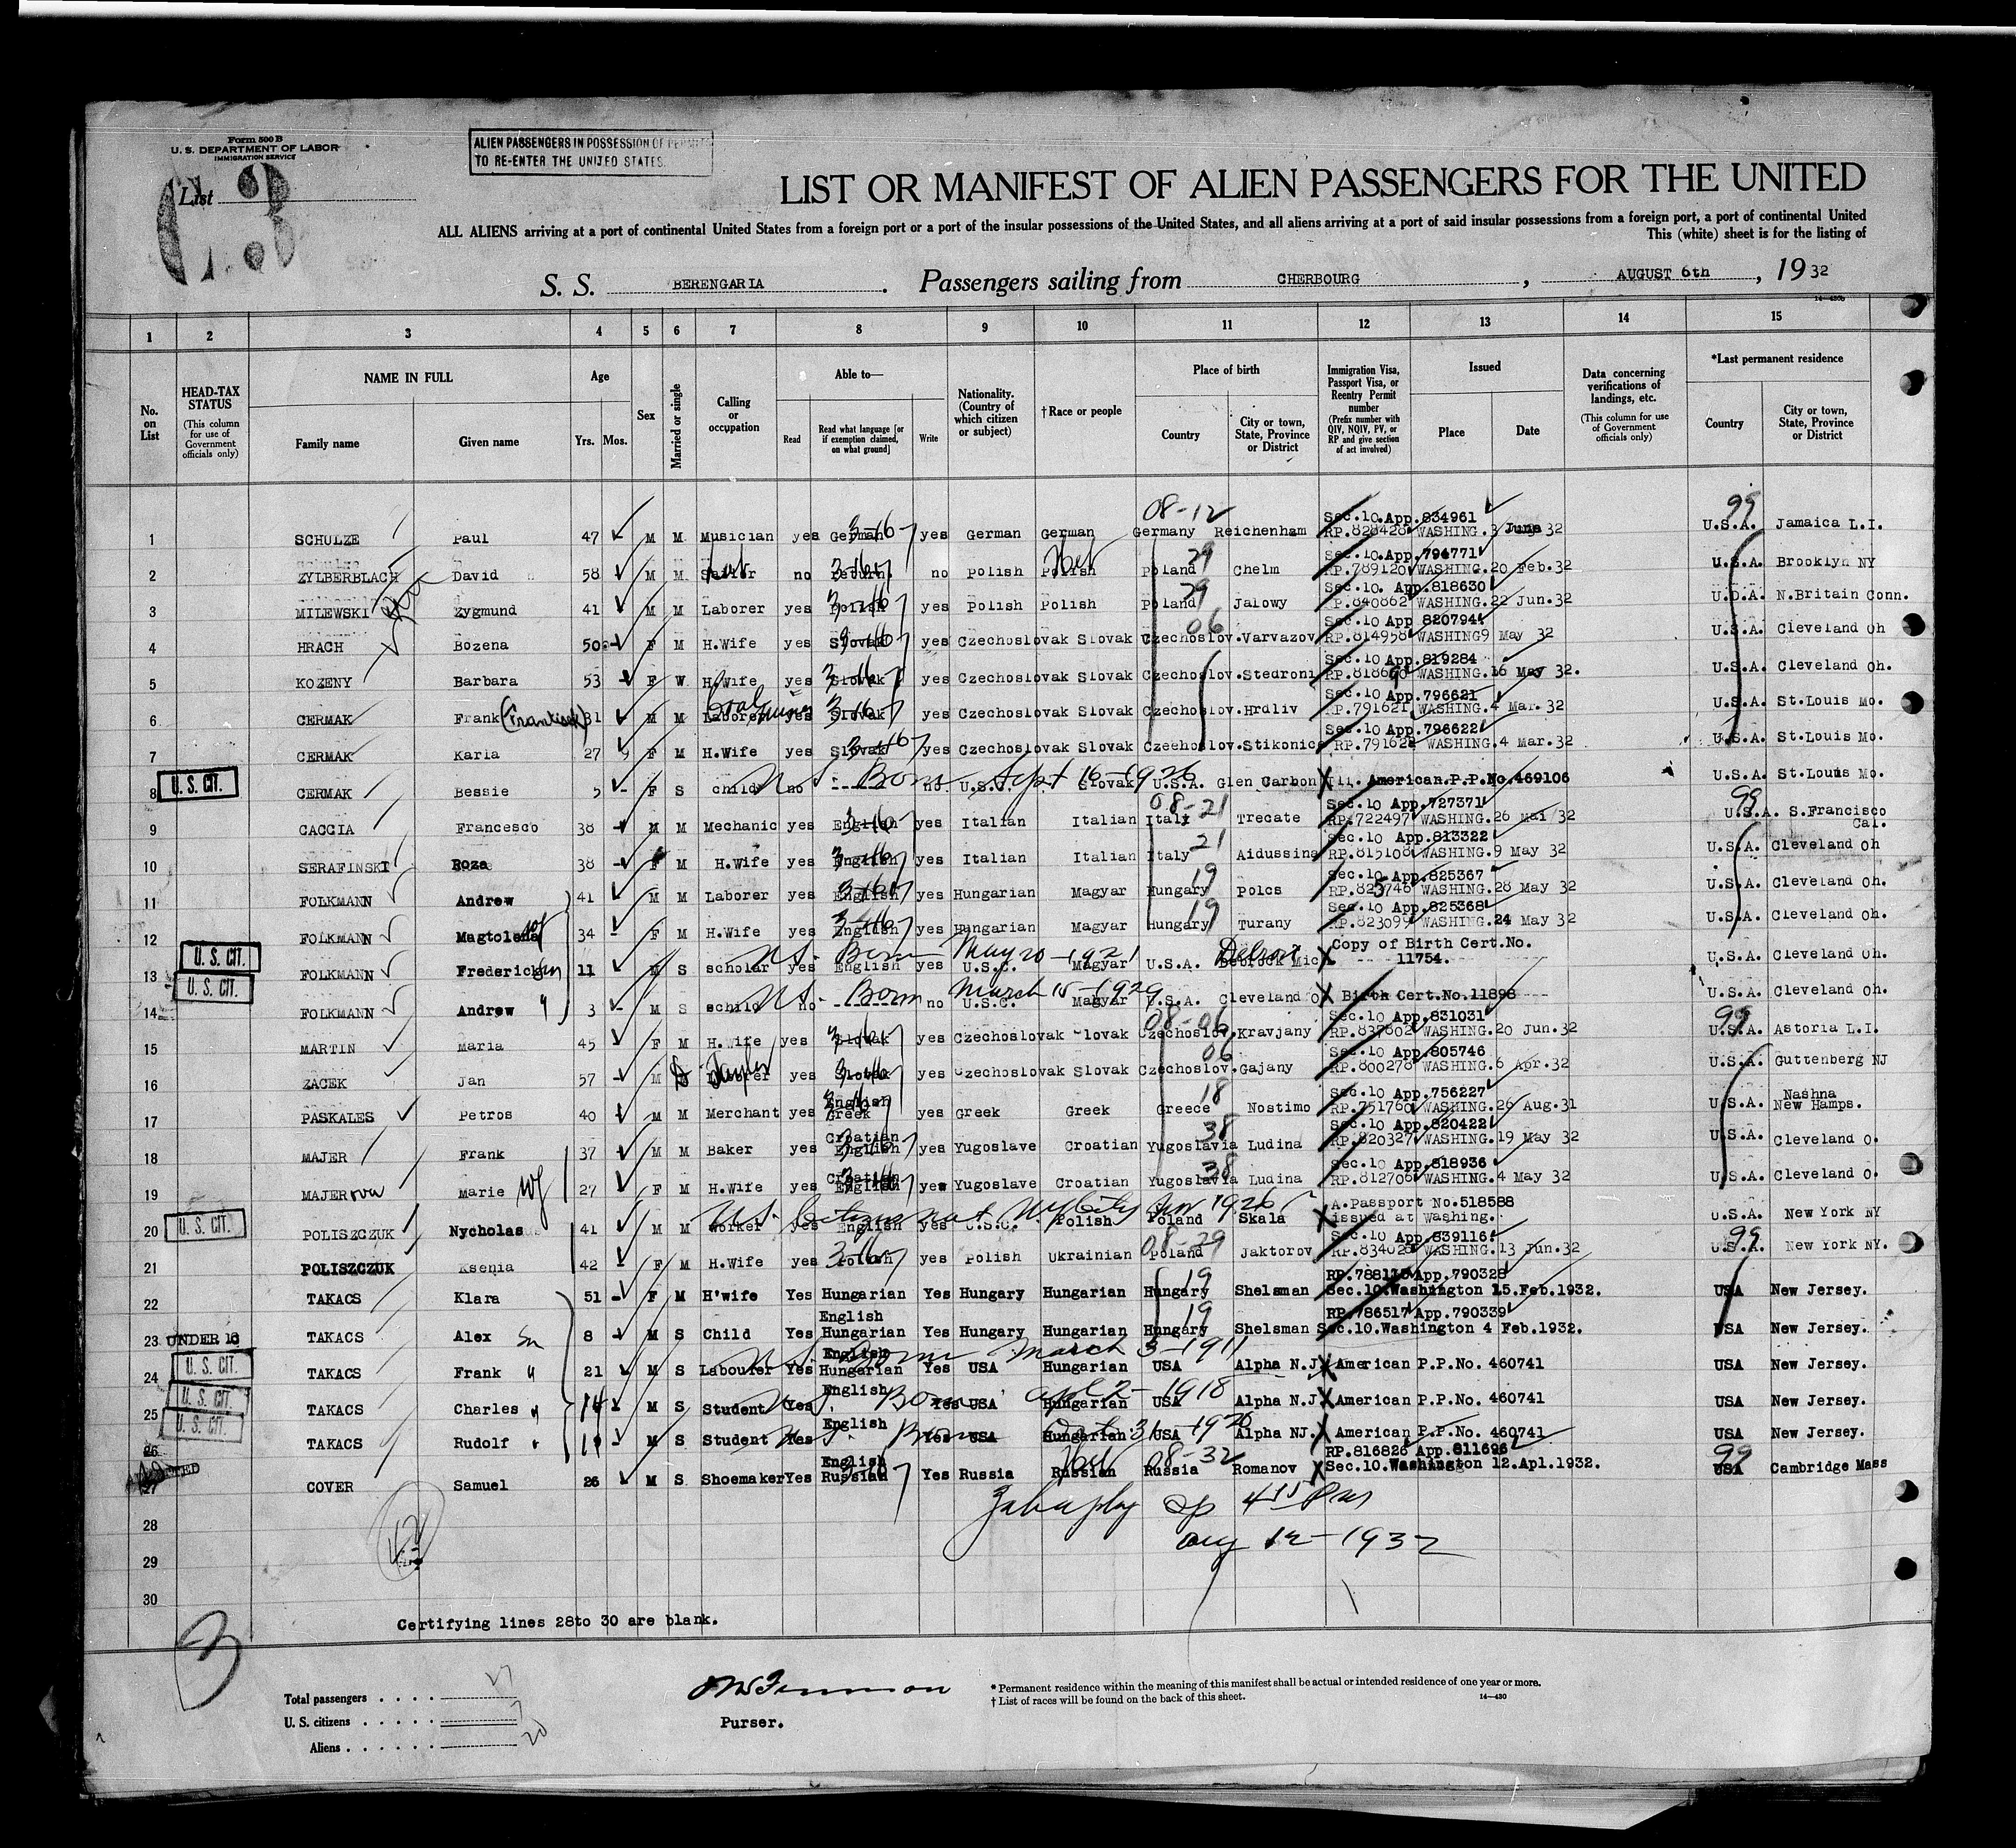 Form 500 B
U. S. DEPARTMENT OF LABOR
IMMIGRATION SERVICE
List
3
ALIEN PASSENGERS IN POSSESSION OF PERMITS
TO RE-ENTER THE UNITED STATES.
LIST OR MANIFEST OF ALIEN PASSENGERS FOR THE UNITED
ALL ALIENS arriving at a port of continental United States from a foreign port or a port of the insular possessions of the United States, and all aliens arriving at a port of said insular possessions from a foreign port, a port of continental United
This (white) sheet is for the listing of
S. S. BERENGARIA . Passengers sailing from CHERBOURG , AUGUST 6th , 19 32
14-430b
1 2 3 4 5 6 7 8 9 10 11 12 13 14 15
No. on List
HEAD-TAX STATUS (This column for use of Government officials only)
NAME IN FULL
Family name Given name
Age
Yrs. Mos.
Sex
Married or single
Calling or occupation
Able to—
Read Read what language [or if exemption claimed, on what ground] Write
Nationality. (Country of which citizen or subject)
†Race or people
Place of birth
Country City or town, State, Province or District
Immigration Visa, Passport Visa, or Reentry Permit number (Prefix number with QIV, NQIV, PV, or RP and give section of act involved)
Issued
Place Date
Data concerning verifications of landings, etc. (This column for use of Government officials only)
*Last permanent residence
Country City or town, State, Province or District
08-12 Sec.10.App.834961 99
1 SCHULZE Paul 47 M M Musician yes German yes German German Germany Reichenham RP.828428 WASHING.3 June 32 U.S.A. Jamaica L.I.
29 Sec.10.App.794771
2 ZYLBERBLACH David 58 M M no no Polish Polish Heb Poland Chelm RP.789120 WASHING.20 Feb.32 U.S.A. Brooklyn NY
29 Sec.10. App.818630
3 MILEWSKI Zygmund 41 M M Laborer yes Polish yes Polish Polish Poland Jalowy RP.840862 WASHING.22 Jun.32 U.S.A. N.Britain Conn.
06 Sec.10 App 820794
4 HRACH Bozena 50 F M H.Wife yes Slovak yes Czechoslovak Slovak Czechoslov. Varvazov RP.814958 WASHING9 May 32 U.S.A. Cleveland Oh
Sec.10 App.819284
5 KOZENY Barbara 53 F W H.Wife yes Slovak yes Czechoslovak Slovak Czechoslov. Stedroni WASHING.16 May 32. U.S.A. Cleveland Oh.
Sec.10 App.796621
6 CERMAK Frank (Frantisek) 31 M M Laborer Coal miner yes Slovak yes Czechoslovak Slovak Czechoslov. Hrdliv RP.791621 WASHING.4 Mar.32 U.S.A. St.Louis Mo.
Sec.10 App.796622
7 CERMAK Karla 27 F M H.Wife yes Slovak yes Czechoslovak Slovak Czechoslov. Stikonice RP.791622 WASHING.4 Mar.32 U.S.A. St.Louis Mo.
U. S. CIT. U.S. Born Sept 16-1926
8 CERMAK Bessie 5 F S child no ------ no U.S.C. Slovak U.S.A. Glen Carbon Ill. American.P.P.No.469106 U.S.A. St.Louis Mo.
08-21 Sec.10 App.727371 99
9 CACCIA Francesco 38 M M Mechanic yes English yes Italian Italian Italy Trecate RP.722497 WASHING.26 Mai 32 U.S.A. S.Francisco Cal.
21 Sec.10 App.813322
10 SERAFINSKI Roza 38 F M H.Wife yes English yes Italian Italian Italy Aidussina RP.815108 WASHING.9 May 32 U.S.A. Cleveland Oh
19 Sec.10 App.825367
11 FOLKMANN Andrew 41 M M Laborer yes English yes Hungarian Magyar Hungary Polcs RP.823746 WASHING.28 May 32 U.S.A. Cleveland Oh.
19 Sec.10 App.825368
12 FOLKMANN Magtolena wf 34 F M H.Wife yes English yes Hungarian Magyar Hungary Turany RP.823099 WASHING.24 May 32 U.S.A. Cleveland Oh.
U. S. CIT. U.S. Born May 20-1921 Detroit Copy of Birth Cert.No.
13 FOLKMANN Frederick Sn 11 M S scholar yes English yes U.S.C. Magyar U.S.A. Debrock Mich. 11754. U.S.A. Cleveland Oh.
U. S. CIT. U.S. Born March 15-1929
14 FOLKMANN Andrew " 3 M S child no no U.S.C. Magyar U.S.A. Cleveland O Birth Cert.No.11898 U.S.A. Cleveland Oh.
08-06 Sec.10 App.831031 99
15 MARTIN Maria 45 F M H.Wife yes Slovak yes Czechoslovak Slovak Czechoslov. Kravjany RP.837602 WASHING.20 Jun.32 U.S.A. Astoria L.I.
06 Sec.10 App.805746
16 ZACEK Jan 57 M yes Slovak yes Czechoslovak Slovak Czechoslov. Gajany RP.800278 WASHING.6 Apr.32 U.S.A. Guttenberg NJ
English 18 Sec.10 App.756227 Nashna
17 PASKALES Petros 40 M M Merchant yes Greek yes Greek Greek Greece Nostimo RP.751760 WASHING.26 Aug.31 U.S.A. New Hamps.
Croatian 38 Sec.10 App.820422
18 MAJER Frank 37 M M Baker yes English yes Yugoslave Croatian Yugoslavia Ludina RP.820327 WASHING.19 May 32 U.S.A. Cleveland O.
Croatian 38 Sec.10 App.818936
19 MAJER ova Marie wf 27 F M H.Wife yes English yes Yugoslave Croatian Yugoslavia Ludina RP.812706 WASHING.4 May 32 U.S.A. Cleveland O.
U. S. CIT. U.S. Citizen nat NY City 1926 A.Passport No.518588
20 POLISZCZUK Nycholas 41 M M Worker yes English yes U.S.C. Polish Poland Skala issued at Washing. U.S.A. New York NY
08-29 Sec.10 App.839116 99
21 POLISZCZUK Ksenia 42 F M H.Wife yes Polish yes Polish Ukrainian Poland Jaktorov RP.834028 WASHING.13 Jun.32 U.S.A. New York NY.
19 App.790328
22 TAKACS Klara 51 F M H'wife Yes Hungarian Yes Hungary Hungarian Hungary Shelsman Sec.10.Washington 15.Feb.1932. USA New Jersey.
English 19 RP.786517 App.790339
23 UNDER 16 TAKACS Alex Sn 8 M S Child Yes Hungarian Yes Hungary Hungarian Hungary Shelsman Sec.10.Washington 4 Feb.1932. USA New Jersey.
U. S. CIT. English U.S. Born March 3-1911
24 TAKACS Frank " 21 M S Labourer Yes Hungarian Yes USA Hungarian USA Alpha N.J. American P.P.No. 460741 USA New Jersey.
U. S. CIT. English U.S. Born Apl 2-1918
25 TAKACS Charles " 14 M S Student Yes Yes USA Hungarian USA Alpha N.J. American P.P.No. 460741 USA New Jersey.
U. S. CIT. English U.S. Born
26 TAKACS Rudolf " M S Student Yes Yes USA Hungarian USA Alpha NJ. American P.P.No. 460741 USA New Jersey.
English Heb 08-32 RP.816826 App.811696 99
27 COVER Samuel 26 M S Shoemaker Yes Russian Yes Russia Russian Russia Romanov Sec.10.Washington 12.Apl.1932. USA Cambridge Mass
28
Aug 12-1932
29
30
Certifying lines 28to 30 are blank.
3
Total passengers . . . . 27
U. S. citizens . . . . . 7
Aliens . . . . . . 20
Purser.
* Permanent residence within the meaning of this manifest shall be actual or intended residence of one year or more.
† List of races will be found on the back of this sheet.
14—430